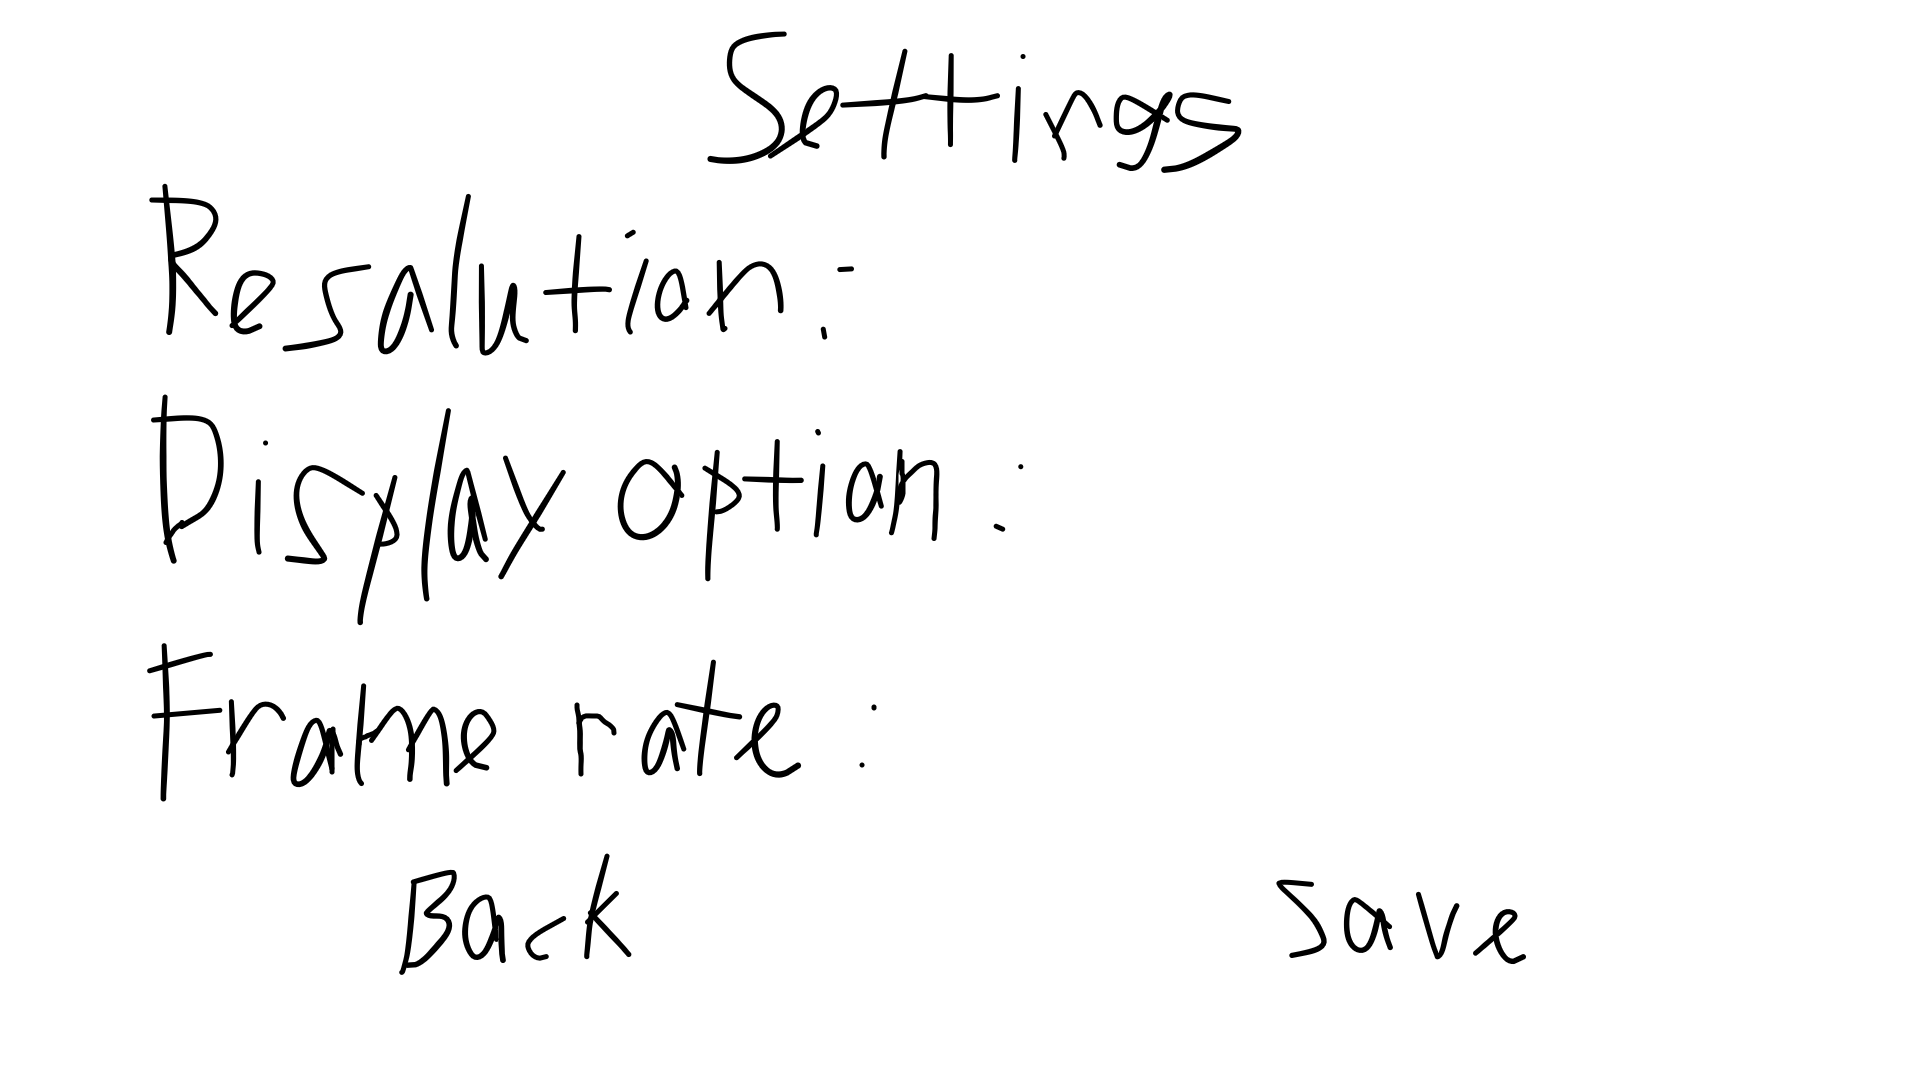 Settings
Resolution:
Display option:
Frame rate:
Back Save